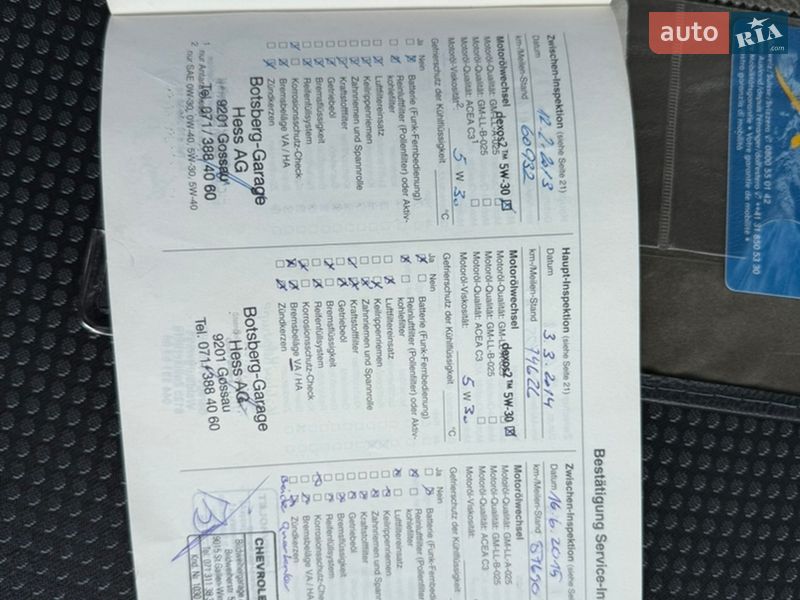 Bestätigung Service-In
Zwischen-Inspektion (siehe Seite 21)
Datum 12.2.2013
km-/Meilen-Stand 60932
Motorölwechsel dexos2™ 5W-30
Motoröl-Qualität: GM-LL-A-025
Motoröl-Qualität: GM-LL-B-025
Motoröl-Qualität: ACEA C3 1
Motoröl-Viskosität 2 5 W 30
Gefrierschutz der Kühlflüssigkeit °C
Ja Nein
Batterie (Funk-Fernbedienung)
Reinluftfilter (Pollenfilter) oder Aktiv-
kohlefilter
Luftfiltereinsatz
Keilrippenriemen
Zahnriemen und Spannrolle
Kraftstofffilter
Getriebeöl
Bremsflüssigkeit
Reifenfüllsystem
Korrosionsschutz-Check
Bremsbeläge VA / HA
Zündkerzen
Botsberg-Garage
Hess AG
9201 Gossau
Tel. 071/388 40 60
2 nur SAE 0W-30, 0W-40, 5W-30, 5W-40
Haupt-Inspektion (siehe Seite 21)
Datum 3.3.2014
km-/Meilen-Stand 74626
Motorölwechsel dexos2™ 5W-30
Motoröl-Qualität: GM-LL-A-025
Motoröl-Qualität: GM-LL-B-025
Motoröl-Qualität: ACEA C3
Motoröl-Viskosität: 5 W 30
Gefrierschutz der Kühlflüssigkeit °C
Ja Nein
Batterie (Funk-Fernbedienung)
Reinluftfilter (Pollenfilter) oder Aktiv-
kohlefilter
Luftfiltereinsatz
Keilrippenriemen
Zahnriemen und Spannrolle
Kraftstofffilter
Getriebeöl
Bremsflüssigkeit
Reifenfüllsystem
Korrosionsschutz-Check
Bremsbeläge VA / HA
Zündkerzen
Botsberg-Garage
Hess AG
9201 Gossau
Tel. 071/388 40 60
Zwischen-Inspektion (siehe Se
Datum 16.6.2015
km-/Meilen-Stand 87690
Motorölwechsel
Motoröl-Qualität: GM-LL-A-025
Motoröl-Qualität: GM-LL-B-025
Motoröl-Qualität: ACEA C3
Motoröl-Viskosität:
Gefrierschutz der Kühlflüssigk
Ja Nein
Batterie (Funk-Fernbed
Reinluftfilter (Pollenfi
kohlefilter
Luftfiltereinsatz
Keilrippenriemen
Zahnriemen und Spa
Kraftstofffilter
Getriebeöl
Bremsflüssigkeit
Reifenfüllsystem
Korrosionsschutz-Che
Bremsbeläge VA / HA
Zündkerzen
CHEVROLE
9015 St Gallen-Win
Tel. 071 311 38
0800 55 01 42
++41 31 850 53 30
Votre garantie de mobilité
auto RIA.com